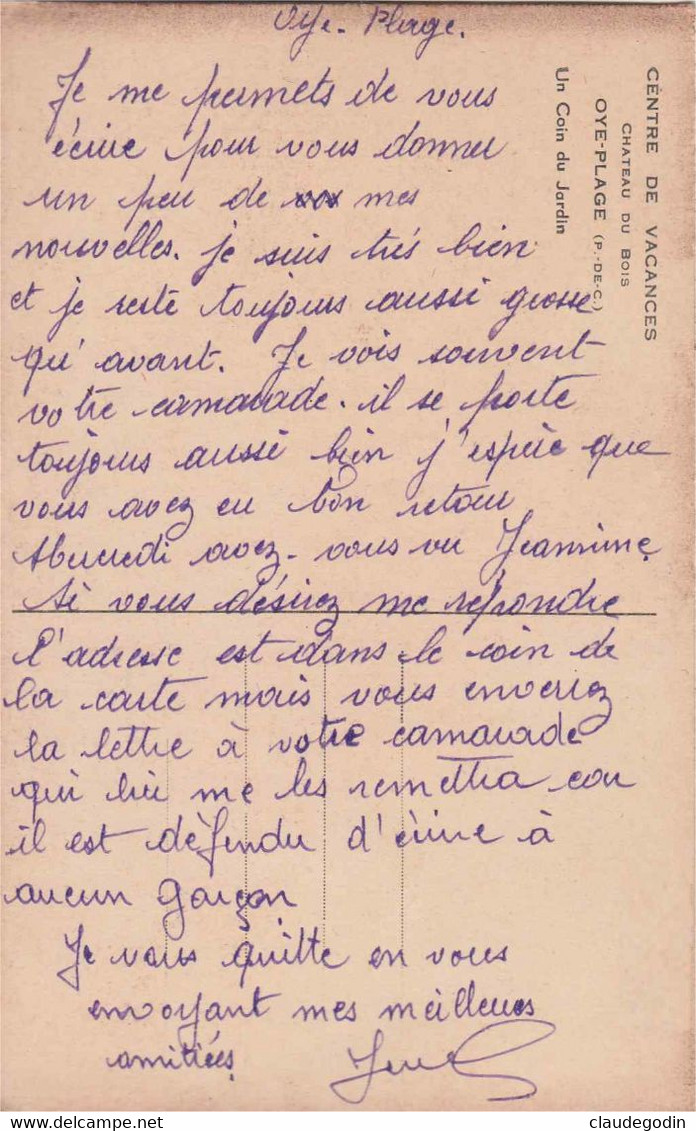 Oye-Plage.
Je me permets de vous
écrire pour vous donner
un peu de mes
nouvelles. je suis très bien
et je reste toujours aussi grosse
qu'avant. Je vois souvent
votre camarade. il se porte
toujours aussi bien j'espère que
vous avez eu bon retour
Mercredi avez-vous vu Jeannine,
si vous désirez me répondre
l'adresse est dans le coin de
la carte mais vous enverrez
la lettre à votre camarade
qui lui me les remettra car
il est défendu d'écrire à
aucun garçon
Je vous quitte en vous
envoyant mes meilleures
amitiées
CENTRE DE VACANCES
CHATEAU DU BOIS
OYE-PLAGE (P.-DE-C.)
Un Coin du Jardin
delcampe.net
claudegodin